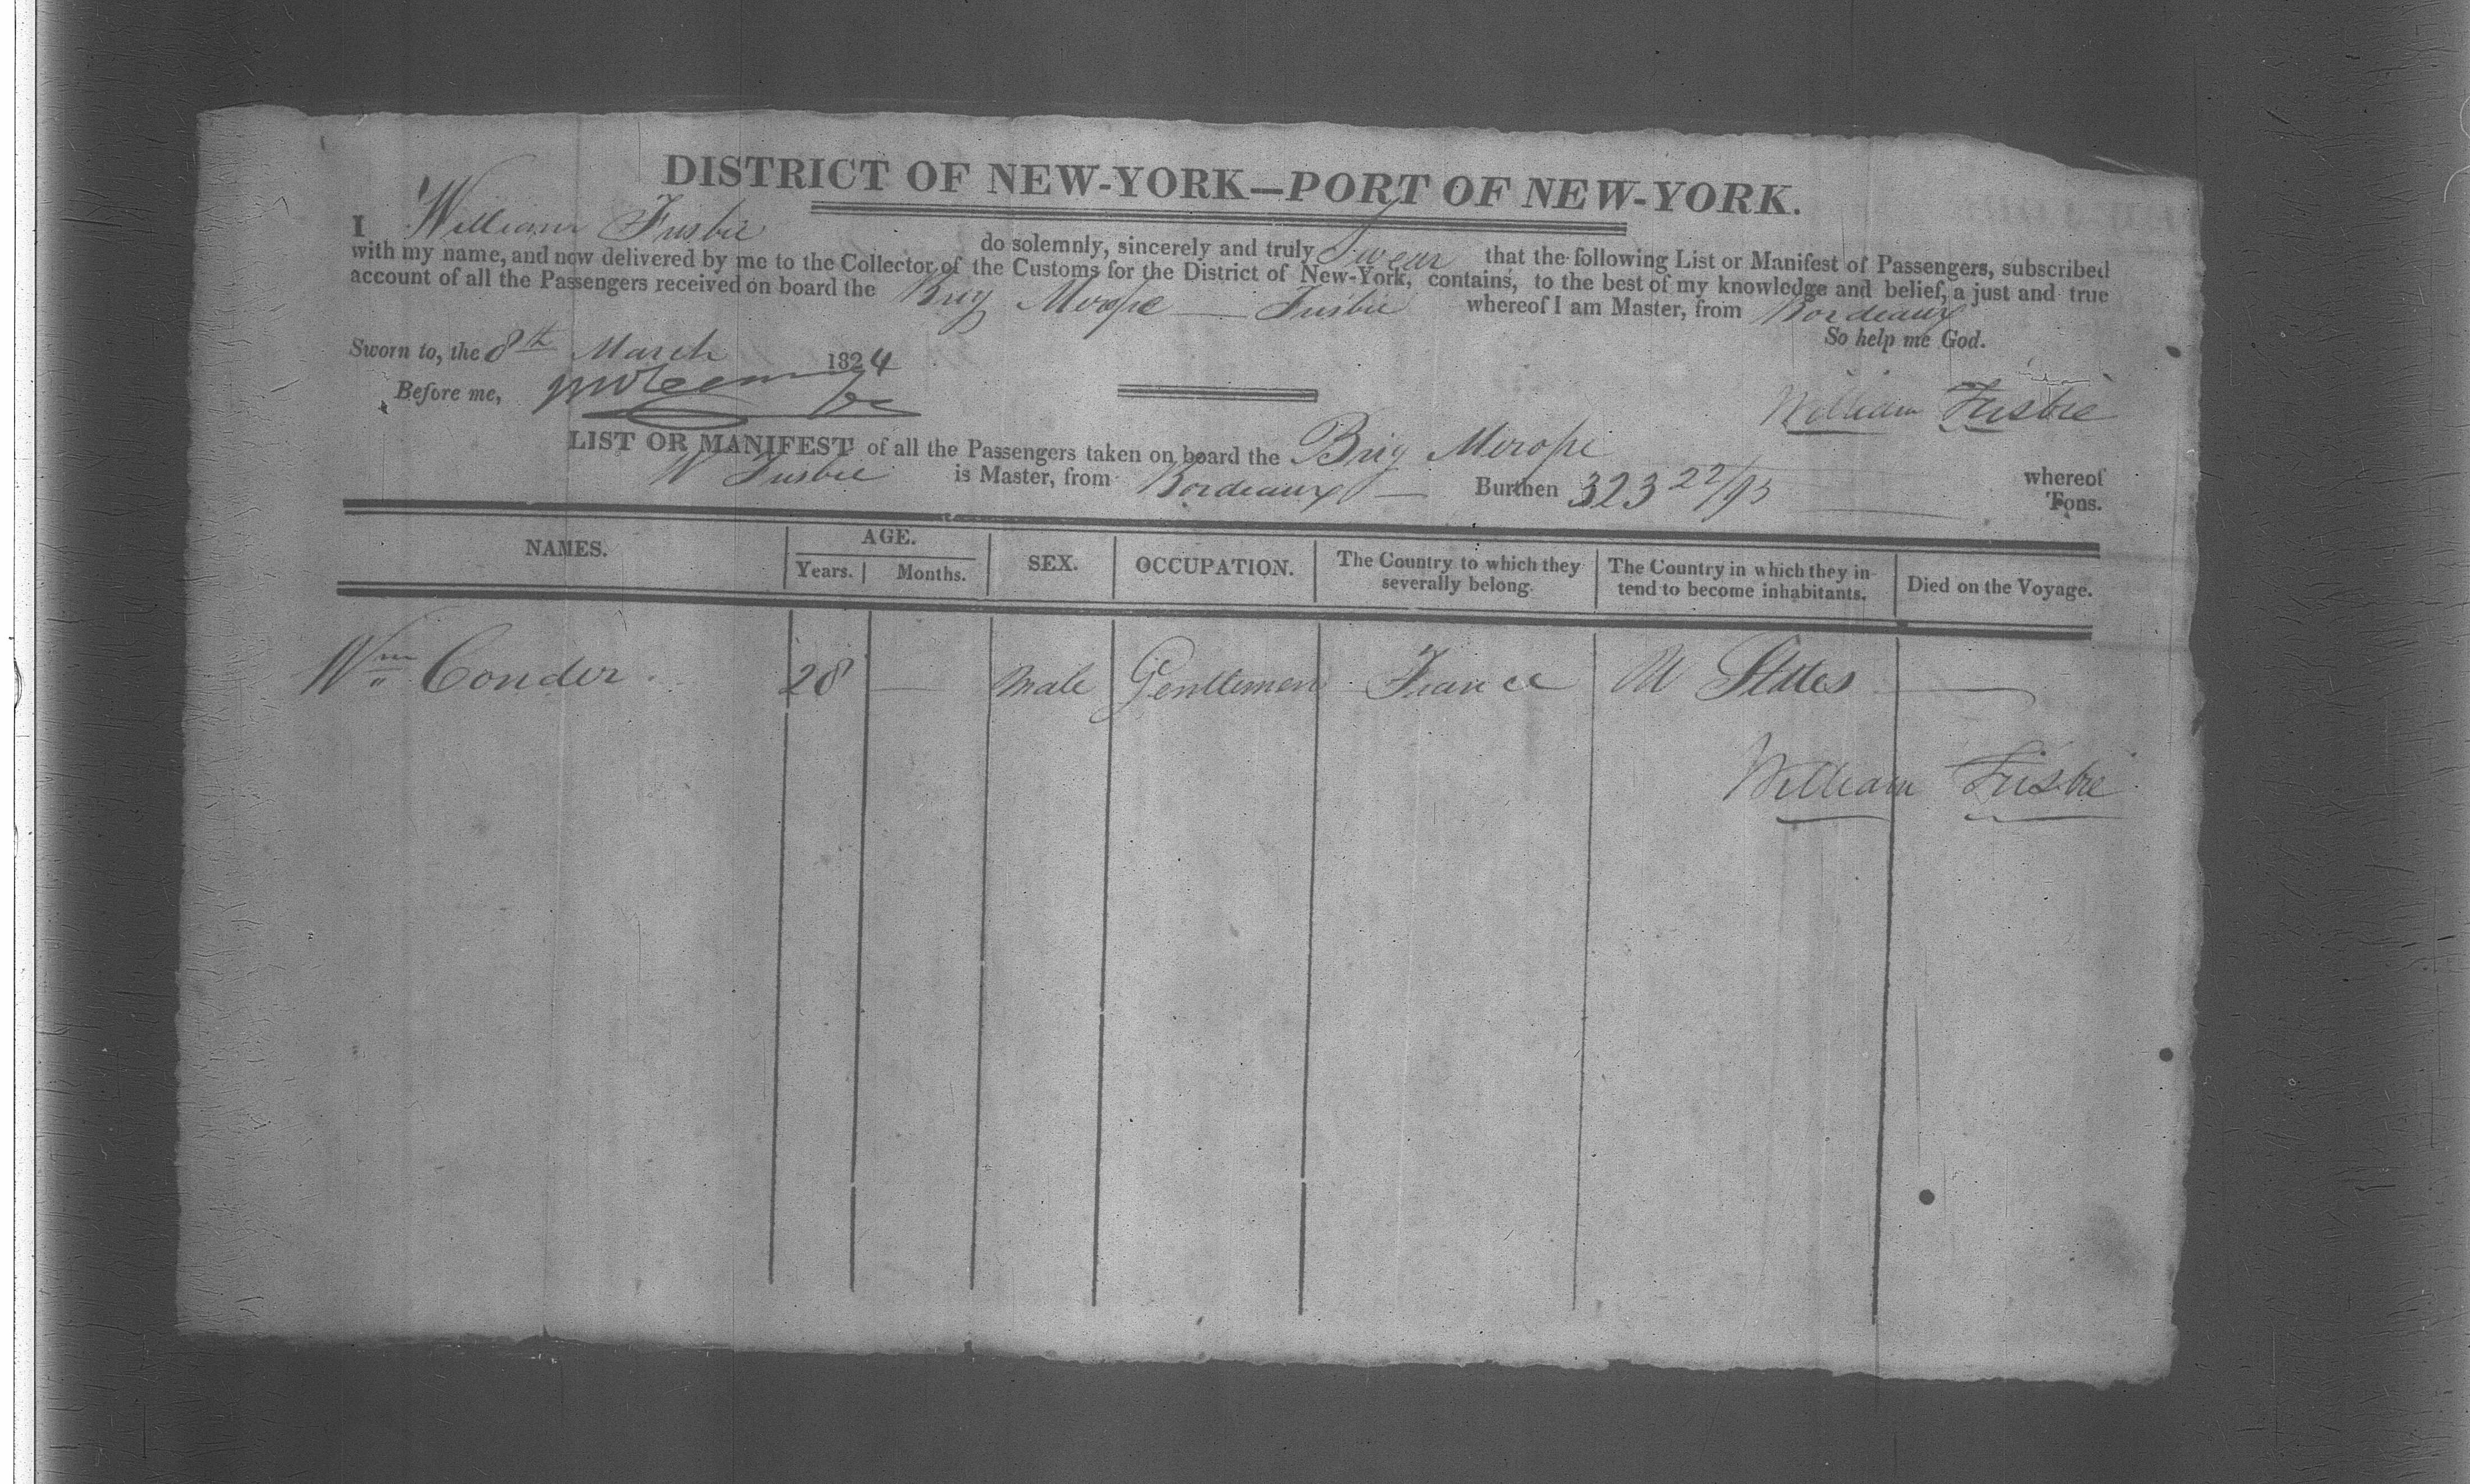 DISTRICT OF NEW-YORK—PORT OF NEW-YORK.
I William Frisbie do solemnly, sincerely and truly Swear that the following List or Manifest of Passengers, subscribed
with my name, and now delivered by me to the Collector of the Customs for the District of New-York, contains, to the best of my knowledge and belief, a just and true
account of all the Passengers received on board the Brig Merope — Frisbie whereof I am Master, from Bordeaux
So help me God.
Sworn to, the 8th March 1824
Before me,
William Frisbie
LIST OR MANIFEST of all the Passengers taken on board the Brig Merope whereof
W Frisbie is Master, from Bordeaux — Burthen 323 22/95 Tons.
NAMES. AGE. SEX. OCCUPATION. The Country to which they severally belong. The Country in which they intend to become inhabitants. Died on the Voyage.
Years. Months.
Wm Conder 28 — Male Gentlemen France U States —
William Frisbie